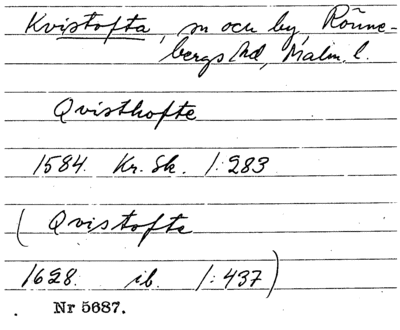 Kvistofta, sn och by, Rönne-
bergs hd, Malm. l.
Qvisthofte
1584. Kr. Sk. 1:283
( Qvistofte
1628. ib. 1:437 )
Nr 5687.